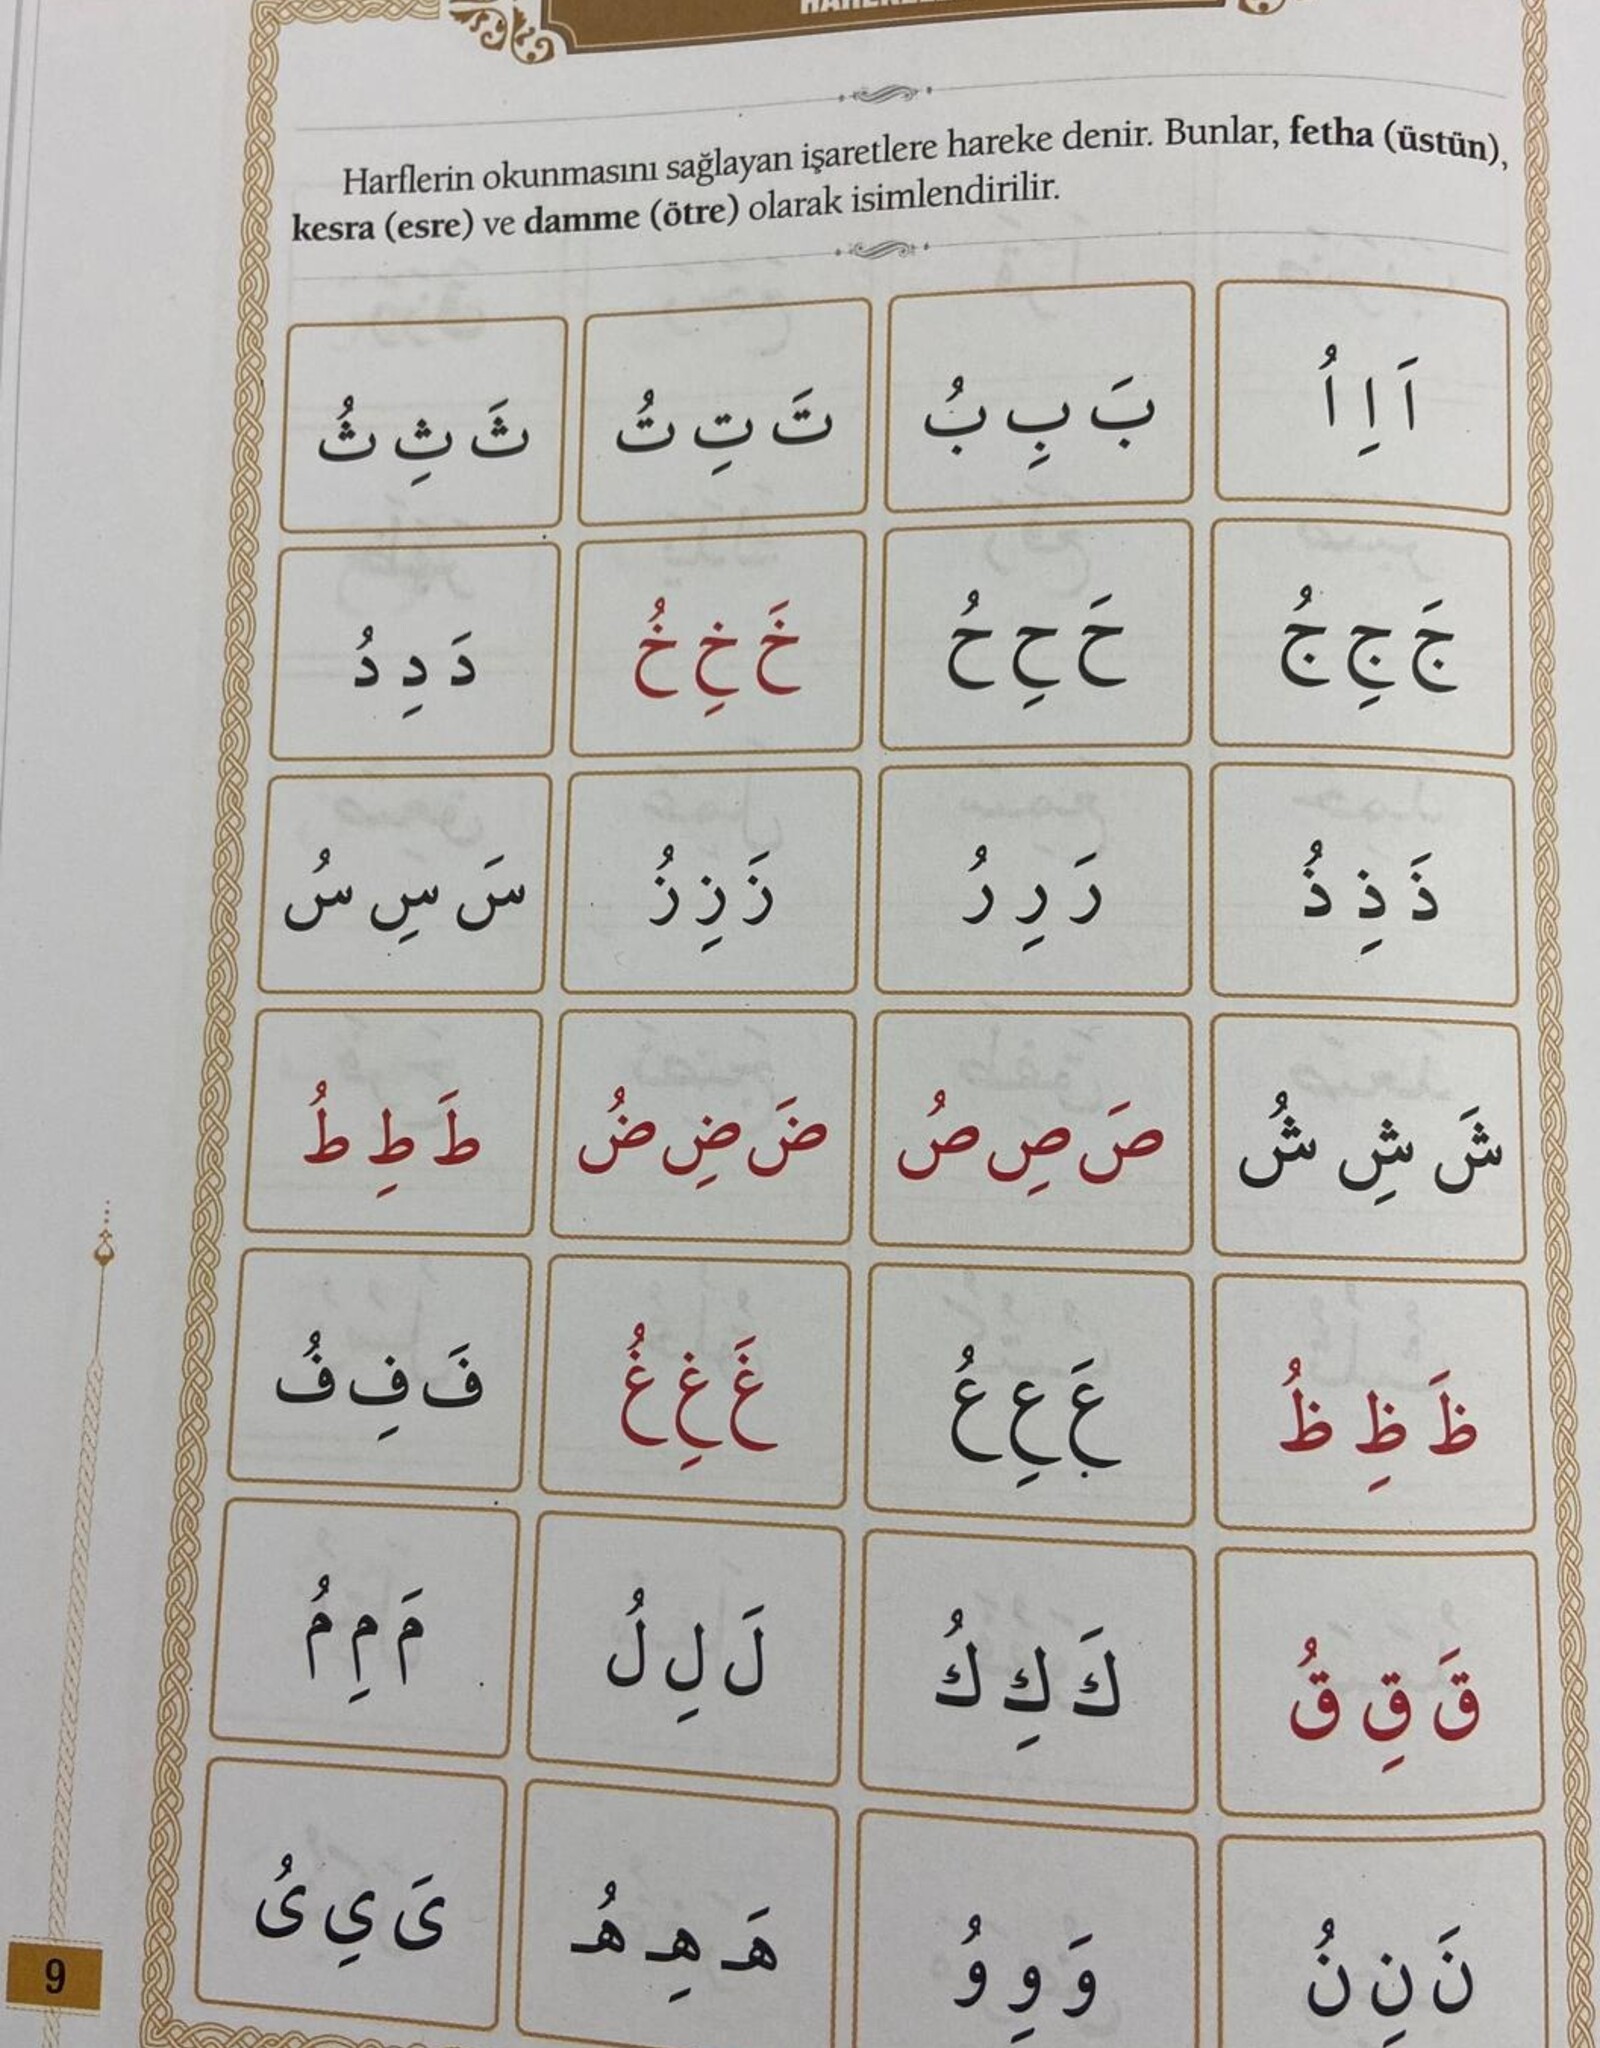 Harflerin okunmasını sağlayan işaretlere hareke denir. Bunlar, fetha (üstün),
kesra (esre) ve damme (ötre) olarak isimlendirilir.
اَ اِ اُ
بَ بِ بُ
تَ تِ تُ
ثَ ثِ ثُ
جَ جِ جُ
حَ حِ حُ
خَ خِ خُ
دَ دِ دُ
ذَ ذِ ذُ
رَ رِ رُ
زَ زِ زُ
سَ سِ سُ
شَ شِ شُ
صَ صِ صُ
ضَ ضِ ضُ
طَ طِ طُ
ظَ ظِ ظُ
عَ عِ عُ
غَ غِ غُ
فَ فِ فُ
قَ قِ قُ
كَ كِ كُ
لَ لِ لُ
مَ مِ مُ
نَ نِ نُ
وَ وِ وُ
هَـ هِـ هُـ
ىَ ىِ ىُ
9